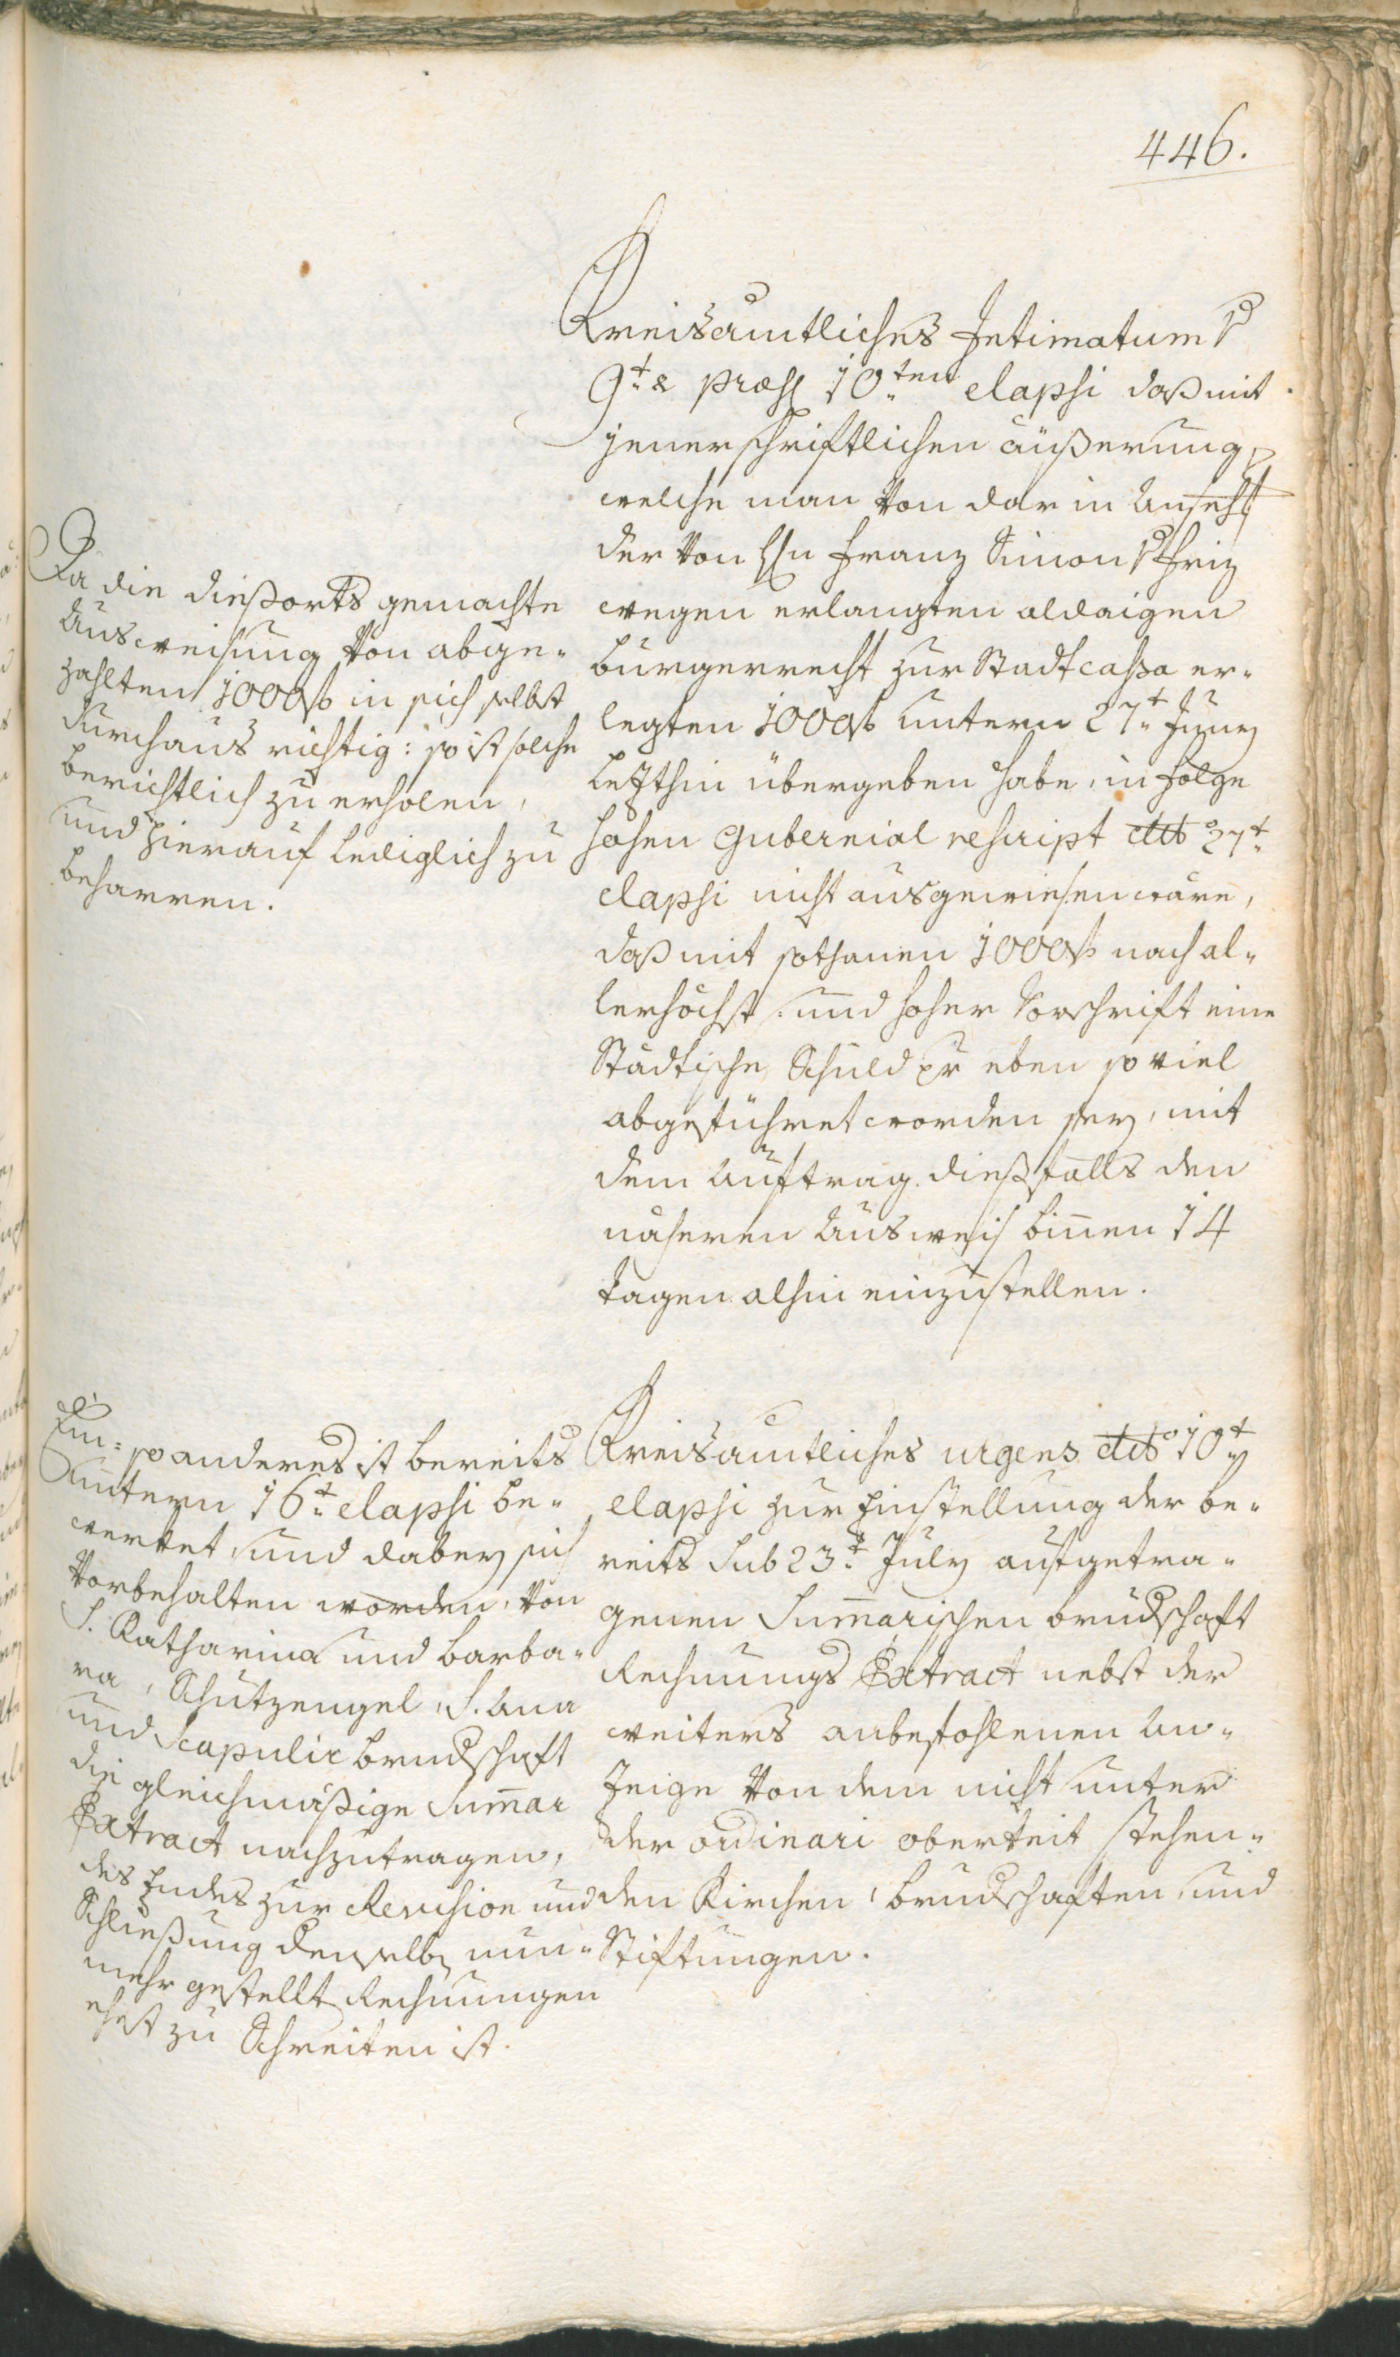 446.
Kreisamtliches Intimatum
9t. & præs. 10ten elapsi daß mit
jener schriftlichen äußerung,
welche man von dar in Anseh
der von H. Franz Simon
wegen erlangten aldaigen
burgerrecht zur Stadtcassa er-
legten 1000 f untern 27t. Juny
letzthin übergeben habe, in folge
hohen Gubernial rescript ddo 27t.
elapsi nicht ausgewiesen wäre,
daß mit sothanen 1000 f nach al-
lerhöchst und hoher Vorschrift eine
Städtische Schuld pr eben so viel
abgeführet worden sey, mit
dem Auftrag dießfalls den
näheren Ausweis binnen 14
tagen alhin einzustellen.
Da die dießorts gemachte
Ausweisung von abge-
zahlten 1000 f in sich selbst
durchaus richtig: so ist solche
berichtlich zu erholen,
und hierauf lediglich zu
beharren.
Kreisamtliches urgens ddo 10t.
elapsi zur Einstellung der be-
reits sub 23t. July aufgetra-
genen Summarischen brudschaft
Rechnungs Extract nebst der
weiters anbefohlenen An-
zeige von dem nicht unter
der ordinari oberkeit stehen-
den Kirchen, brudschaften und
Stiftungen.
Ein- so anderes ist bereits
untern 16t. elapsi be-
werket und dabey sich
vorbehalten worden, von
S. Katharina und barba-
ra, Schutzengel, S. Ana
und Scapulir brudschaft
die gleichmäßige Summar
Extract nachzutragen,
des Endes zur Revision und
Schließung derselben nun-
mehr gestellt Rechnungen
ehest zu Schreiten ist.